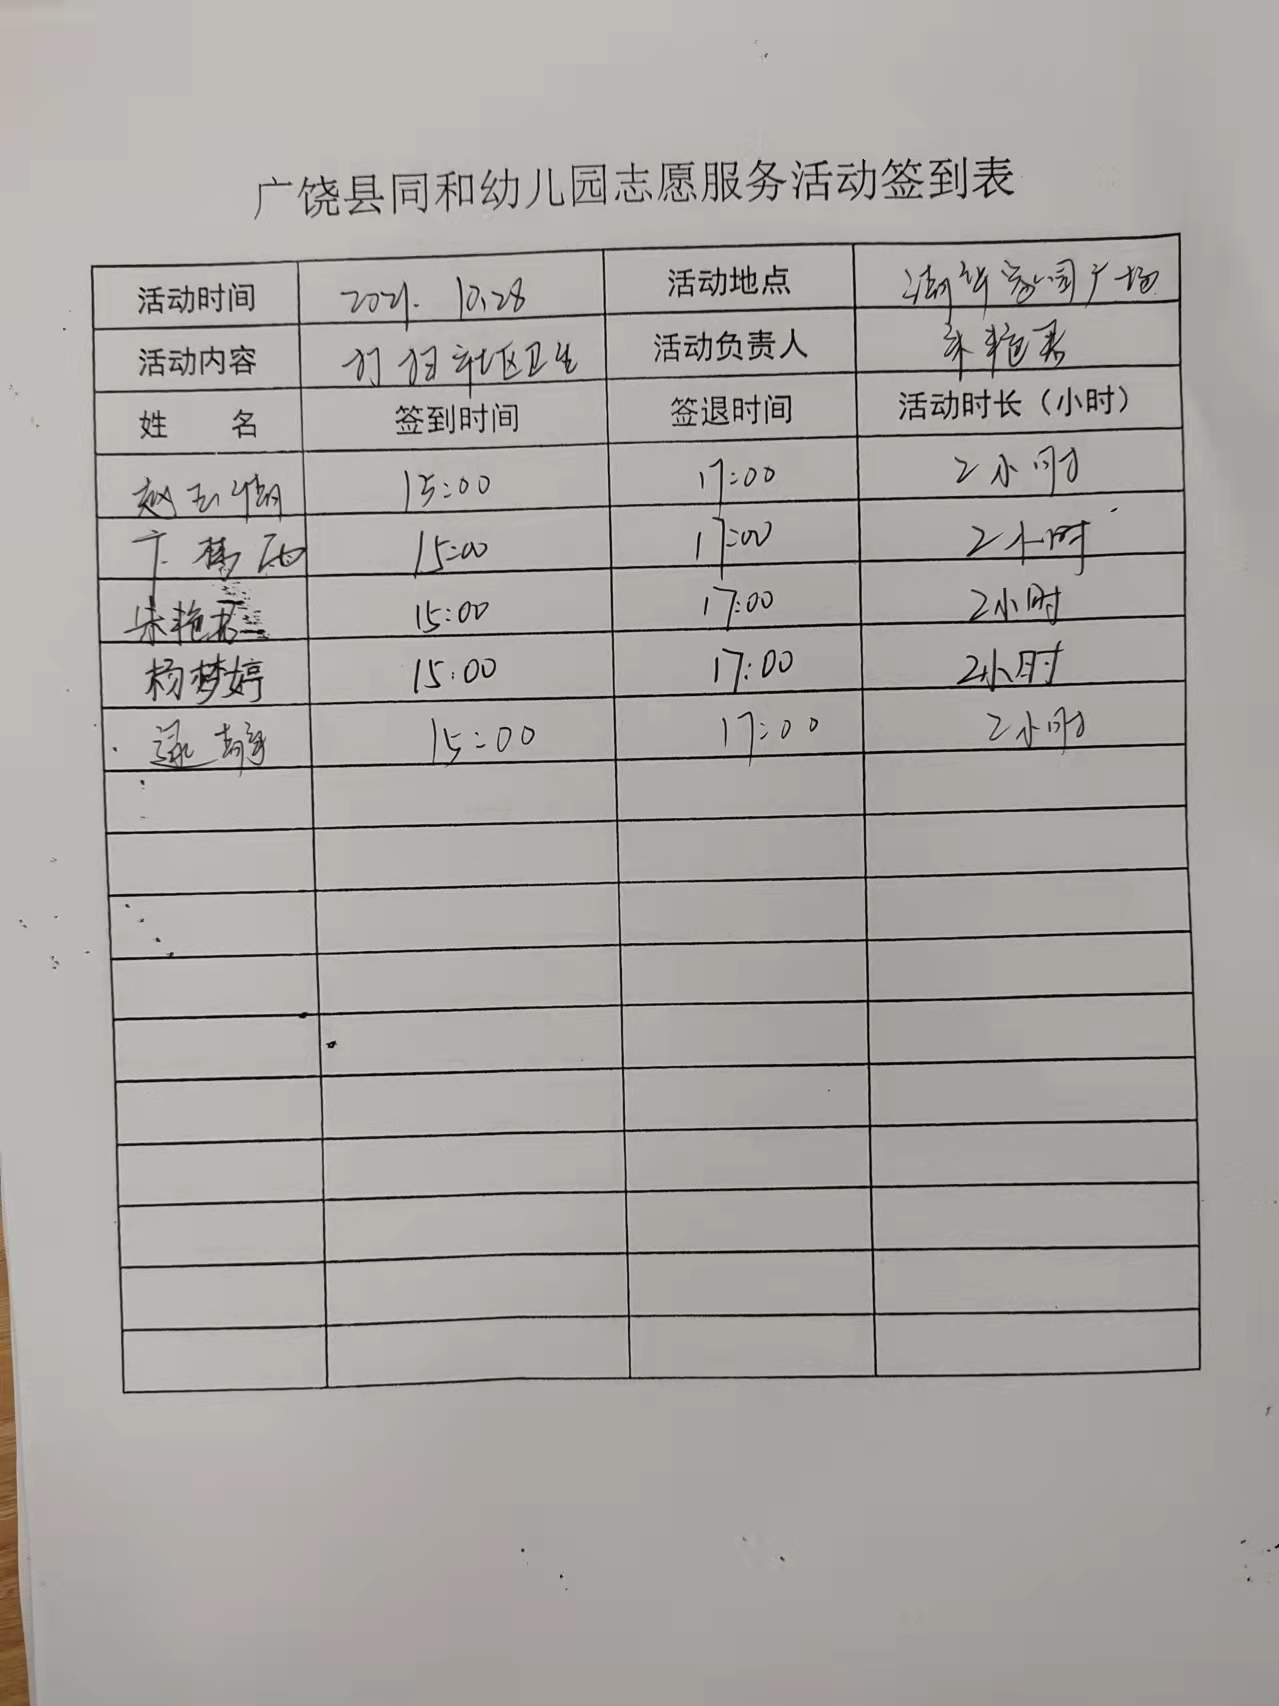 广饶县同和幼儿园志愿服务活动签到表
活动时间 2021.10.28 活动地点 清华家园广场
活动内容 打扫社区卫生 活动负责人 朱艳君
姓 名 签到时间 签退时间 活动时长（小时）
赵玉倩 15:00 17:00 2小时
15:00 17:00 2小时
朱艳君 15:00 17:00 2小时
杨梦婷 15:00 17:00 2小时
逯静 15:00 17:00 2小时